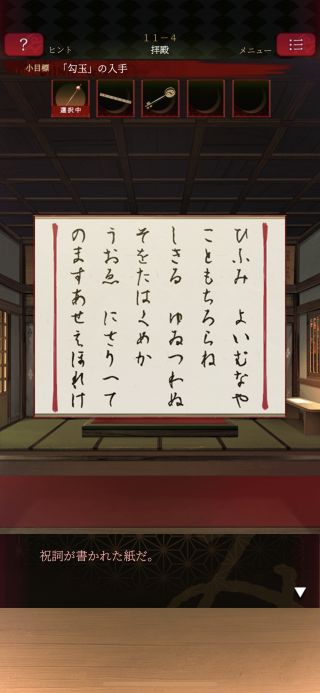 11-4
?
ヒント
拝殿
メニュー
小目標 「勾玉」の入手
選択中
ひふみ よいむなや
こともちろらね
しきる ゆゐつわぬ
そをたはくめか
うおゑ にさりへて
のますあせえほれけ
祝詞が書かれた紙だ。